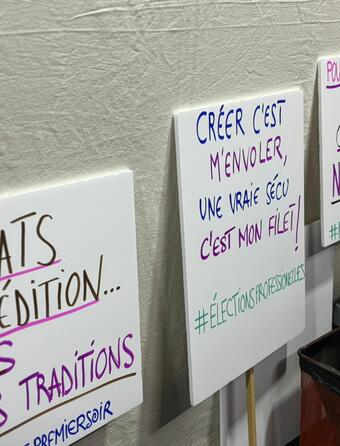 ATS
ÉDITION...
S
S TRADITIONS
PREMIERSOIR
CRÉER C'EST
M'ENVOLER,
UNE VRAIE SÉCU
C'EST MON FILET!
#ÉLECTIONSPROFESSIONELLES
POU
N
#